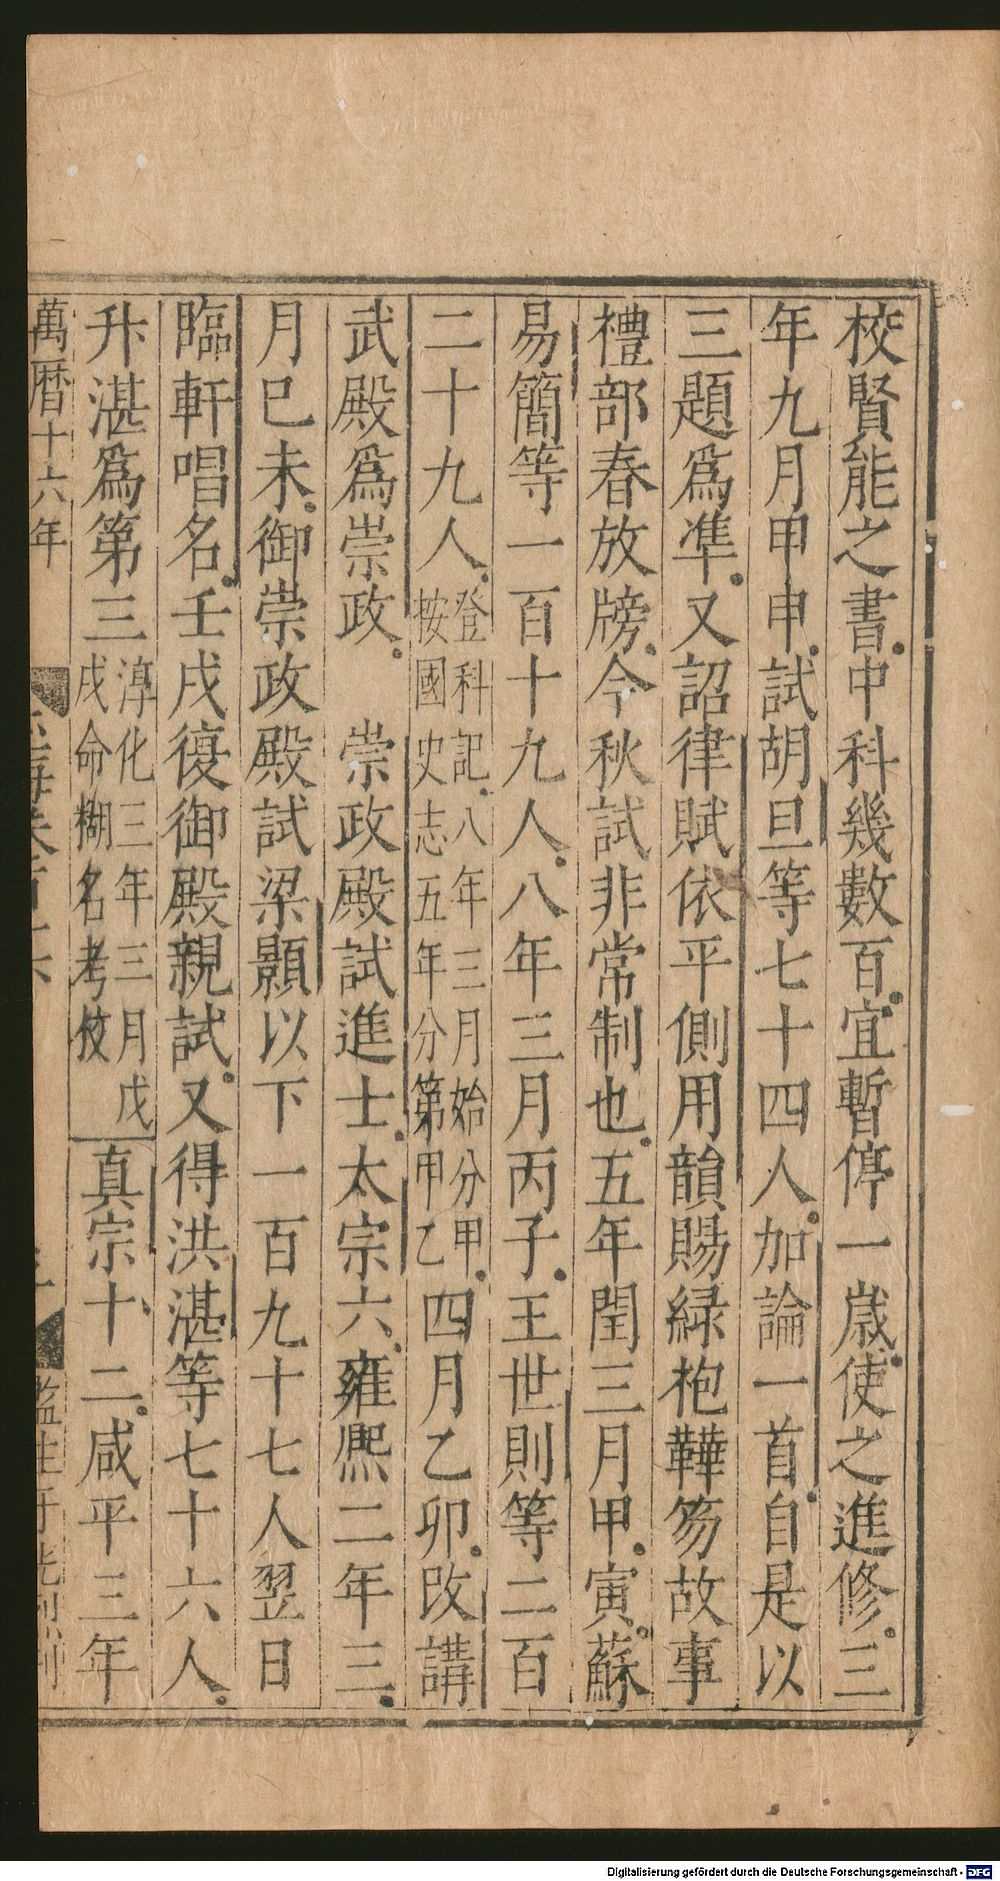 校賢能之書中科幾數百宜暫停一歲使之進修三
年九月甲申試胡旦等七十四人加論一首自是以
三題爲準又詔律賦依平側用韻賜緑袍鞾笏故事
禮部春放牓今秋試非常制也五年閏三月甲寅蘇
易簡等一百十九人八年三月丙子王世則等二百
二十九人登科記八年三月始分甲按國史志五年分第甲乙四月乙卯改講
武殿爲崇政　崇政殿試進士太宗六雍熙二年三
月巳未御崇政殿試梁顥以下一百九十七人翌日
臨軒唱名壬戌復御殿親試又得洪湛等七十六人
升湛爲第三淳化三年三月戊戌命糊名考校真宗十二咸平三年
萬曆十六年
Digitalisierung gefördert durch die Deutsche Forschungsgemeinschaft - DFG